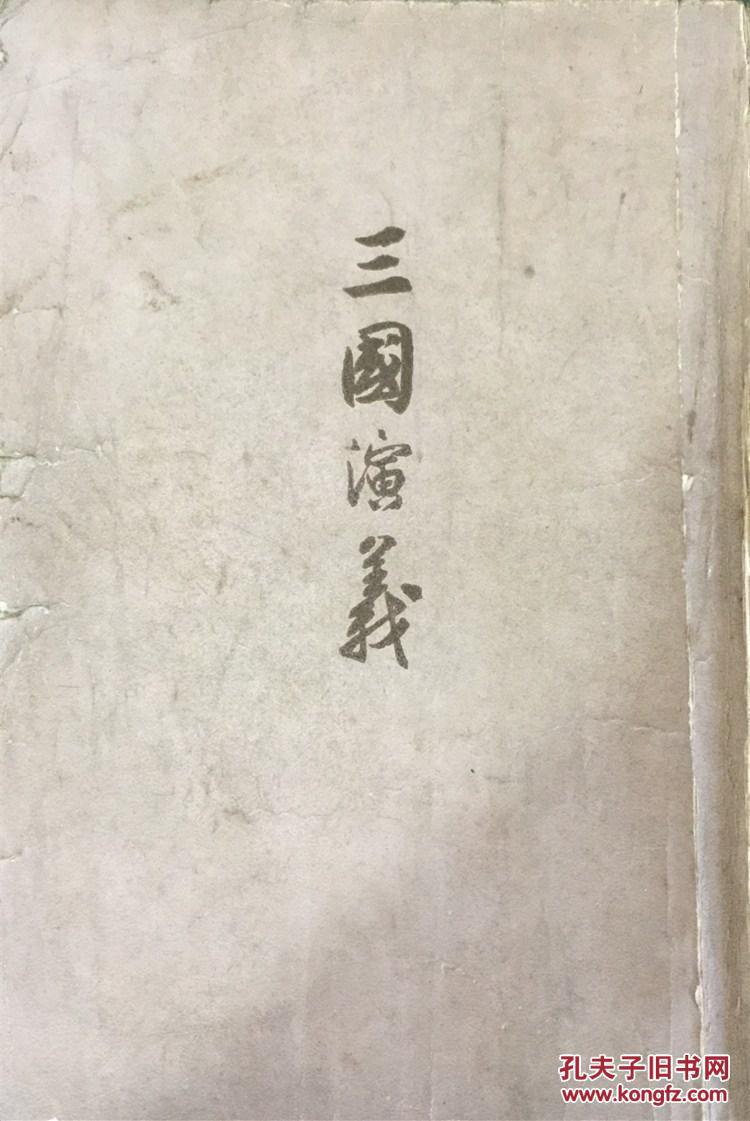 三國演義
孔夫子旧书网
www.kongfz.com